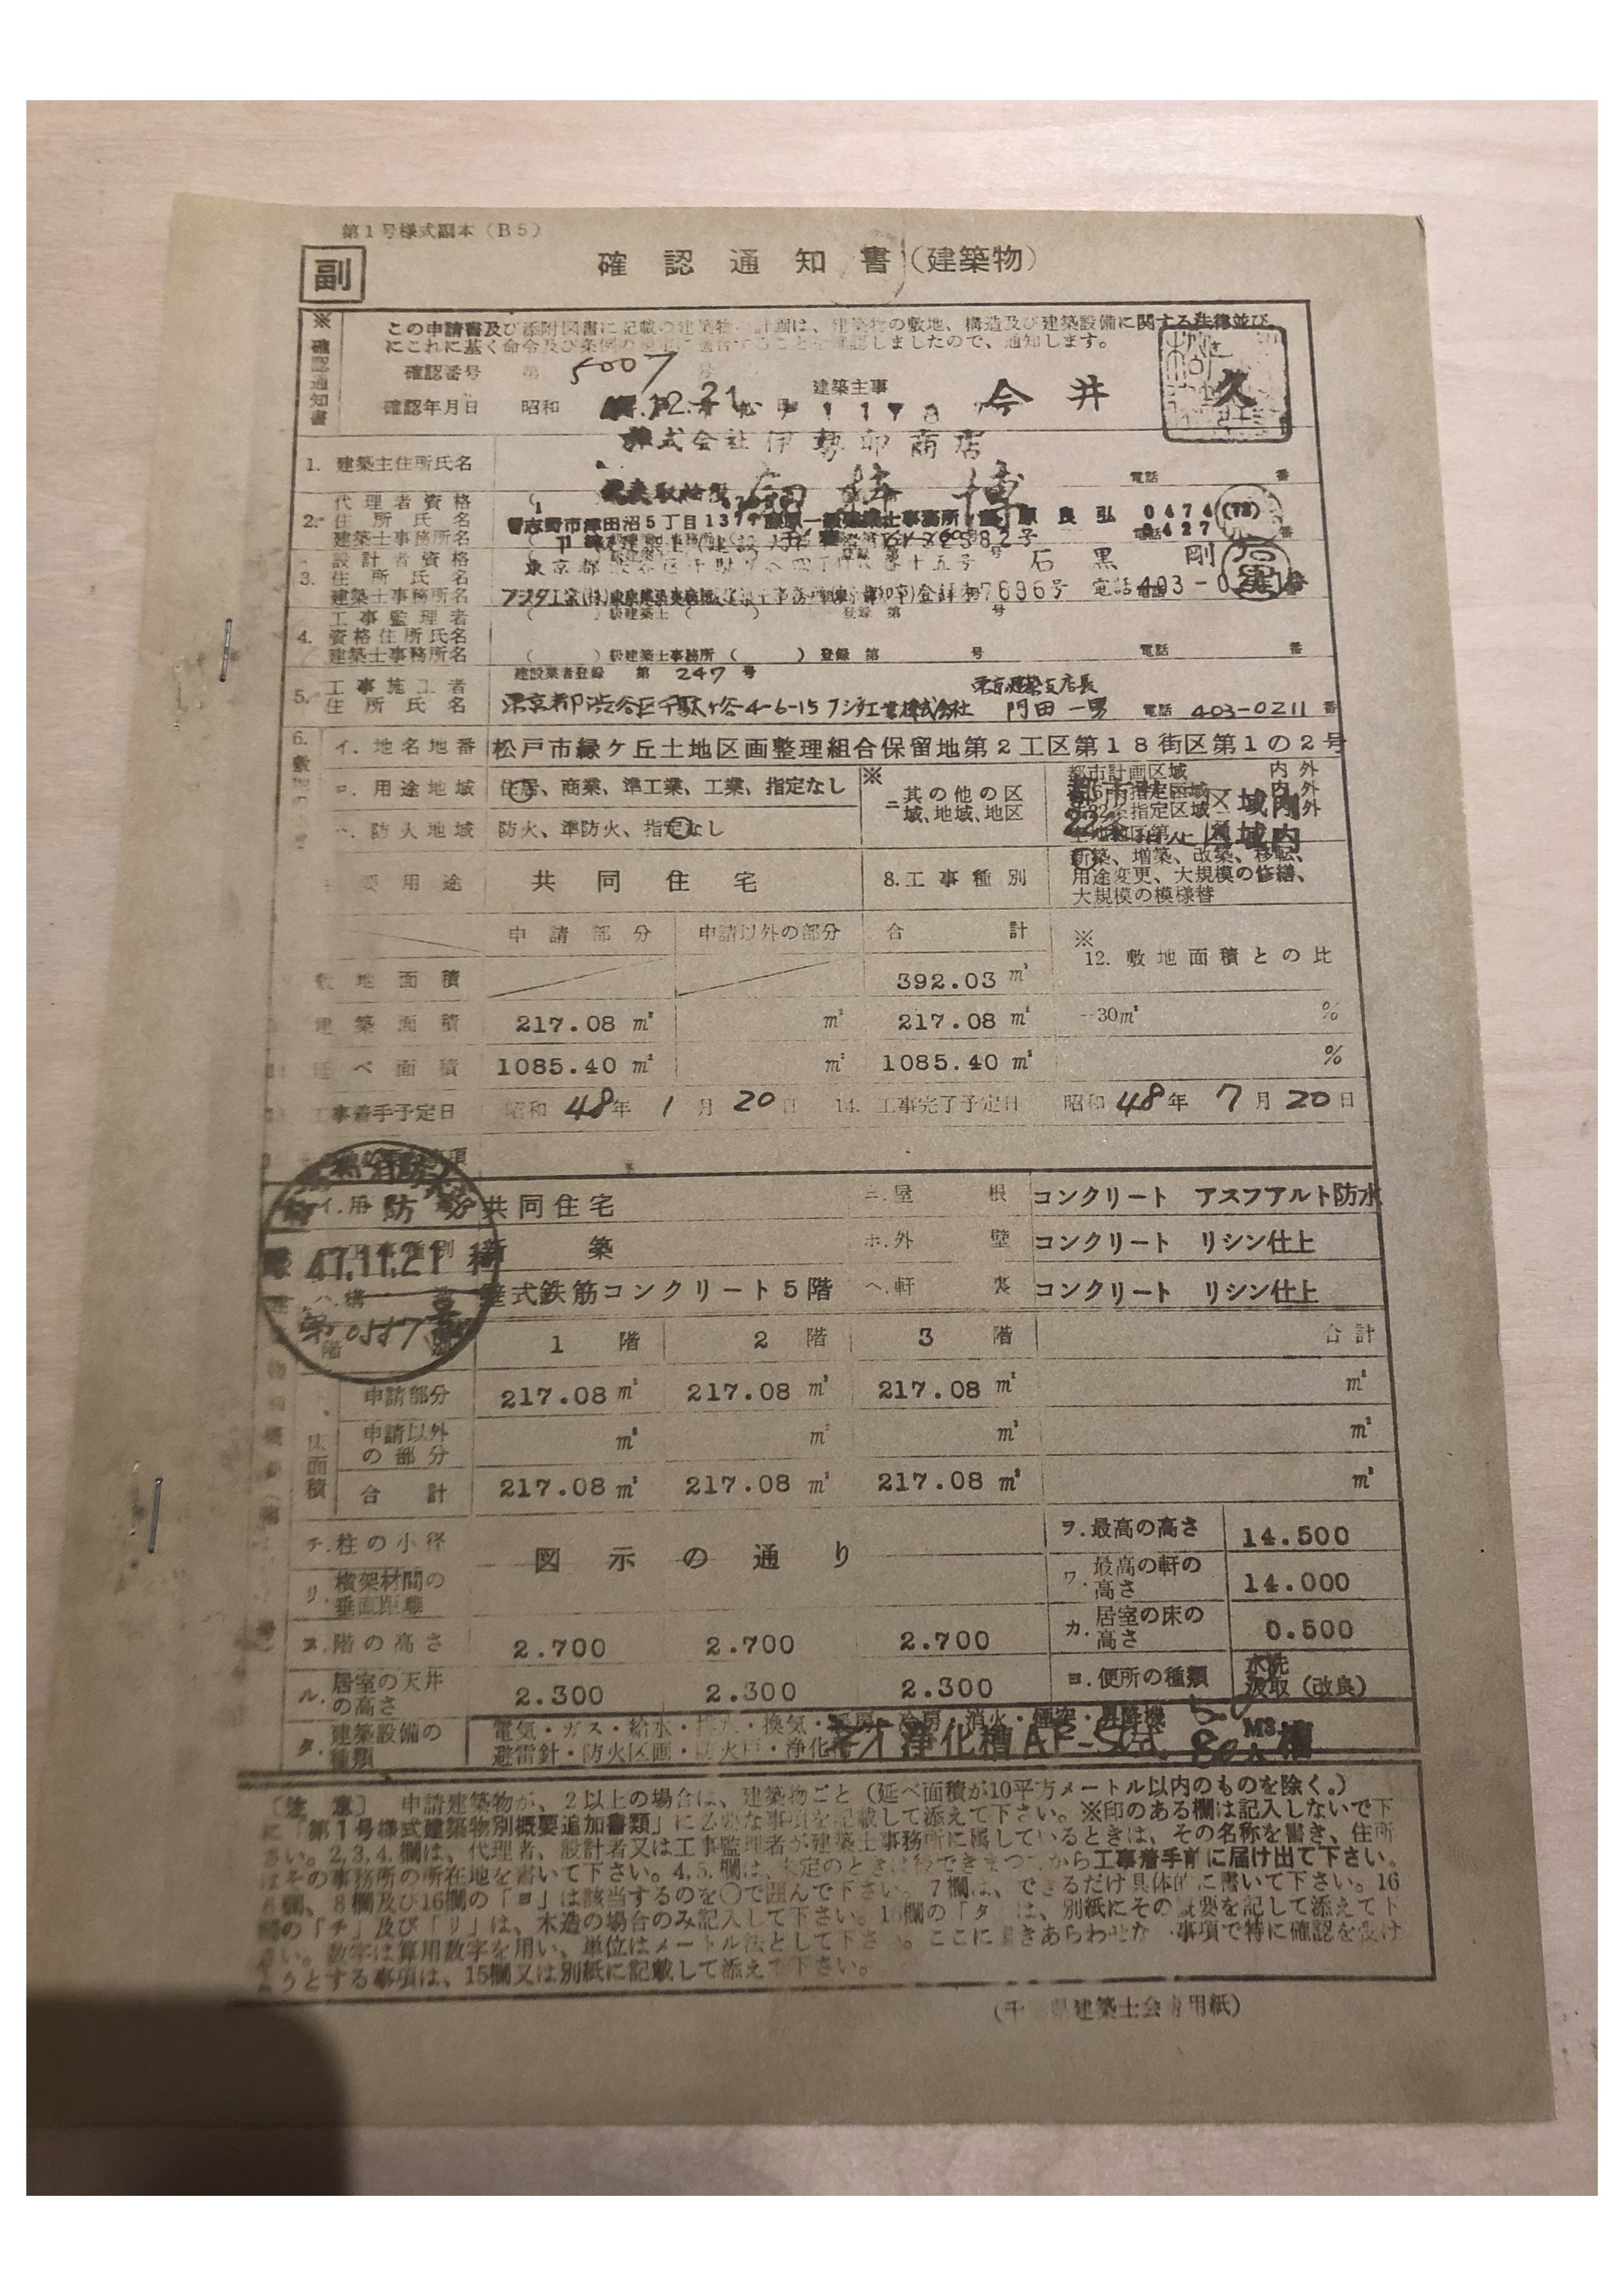 第1号様式副本（B5）
副
確認通知書（建築物）
※確認通知書
この申請書及び添附図書に記載の建築物の計画は、建築物の敷地、構造及び建築設備に関する法律並び
にこれに基く命令及び条例の規定に適合することを確認しましたので、通知します。
確認番号 第 5007 号
確認年月日 昭和 12.21 建築主事 今井 久
株式会社伊勢卯商店
1. 建築主住所氏名 電話 番
2. 代理者資格 住所氏名 建築士事務所名
習志野市津田沼5丁目137 原良弘 0474(72) 0427 番
3. 設計者資格 住所氏名 建築士事務所名
東京都渋谷区千駄ケ谷四丁目六番十五号 石黒 剛
フジタ工業(株) 登録 7696号 電話 403-0
4. 工事監理者 資格住所氏名 建築士事務所名
( )級建築士 ( ) 登録 第 号
( )級建築士事務所 ( ) 登録 第 号 電話 番
5. 工事施工者 住所氏名
建設業者登録 第 247 号
東京建築支店長
東京都渋谷区千駄ケ谷-4-6-15 フジタ工業株式会社 門田一男 電話 403-0211 番
6. イ.地名地番 松戸市緑ケ丘土地区画整理組合保留地第2工区第18街区第1の2号
ロ.用途地域 住居、商業、準工業、工業、指定なし
ハ.防火地域 防火、準防火、指定なし
※ニ 其の他の区域、地域、地区
都市計画区域 内外
区域内
区域内
主要用途 共同住宅
8.工事種別 新築、増築、改築、移転、
用途変更、大規模の修繕、
大規模の模様替
申請部分 申請以外の部分 合計
※12.敷地面積との比
敷地面積 392.03 ㎡
建築面積 217.08 ㎡ ㎡ 217.08 ㎡ －30㎡ %
延べ面積 1085.40 ㎡ ㎡ 1085.40 ㎡ %
工事着手予定日 昭和 48年 1月 20日 14. 工事完了予定日 昭和 48年 7月 20日
47.11.21
イ.用 共同住宅 ニ.屋根 コンクリート アスフアルト防水
新築 ホ.外壁 コンクリート リシン仕上
ハ.構造 壁式鉄筋コンクリート5階 ヘ.軒裏 コンクリート リシン仕上
第0557号
階 1階 2階 3階 合計
床面積
申請部分 217.08 ㎡ 217.08 ㎡ 217.08 ㎡ ㎡
申請以外の部分 ㎡ ㎡ ㎡ ㎡
合計 217.08 ㎡ 217.08 ㎡ 217.08 ㎡ ㎡
チ.柱の小径 図示の通り ヲ.最高の高さ 14.500
リ.横架材間の垂直距離 ワ.最高の軒の高さ 14.000
ヌ.階の高さ 2.700 2.700 2.700 カ.居室の床の高さ 0.500
ル.居室の天井の高さ 2.300 2.300 2.300 ヨ.便所の種類 水洗 汲取（改良）
タ.建築設備の種類 電気・ガス・給水・排水・換気・暖房・冷房・消火・煙突・昇降機
避雷針・防火区画・防火戸・浄化 ネオ浄化槽AF-50
〔注意〕 申請建築物が、2以上の場合は、建築物ごと（延べ面積が10平方メートル以内のものを除く。）
に「第1号様式建築物別概要追加書類」に必要な事項を記載して添えて下さい。※印のある欄は記入しないで下
さい。2,3,4.欄は、代理者、設計者又は工事監理者が建築士事務所に属しているときは、その名称を書き、住所
はその事務所の所在地を書いて下さい。4,5.欄は、未定のときは後できまつてから工事着手前に届け出て下さい。
6欄、8欄及び16欄の「ヨ」は該当するのを〇で囲んで下さい。7欄は、できるだけ具体的に書いて下さい。16
欄の「チ」及び「リ」は、木造の場合のみ記入して下さい。16欄の「タ」は、別紙にその概要を記して添えて下
さい。数字は算用数字を用い、単位はメートル法として下さい。ここに書きあらわせない事項で特に確認を受け
ようとする事項は、15欄又は別紙に記載して添えて下さい。
（千葉県建築士会専用紙）